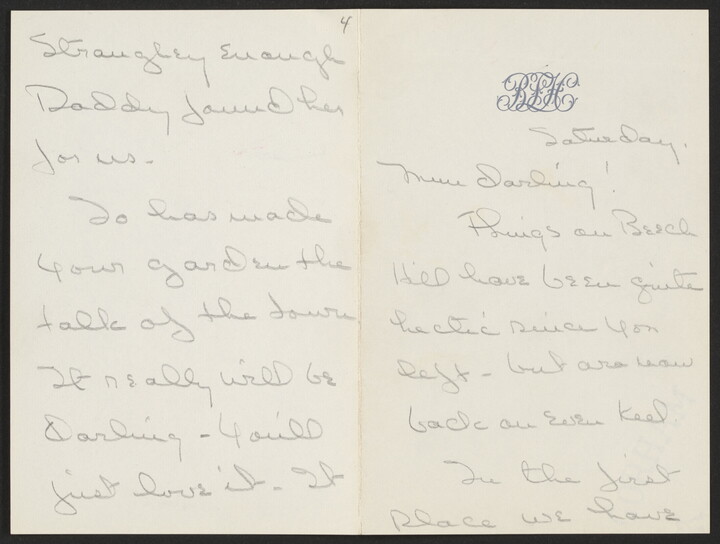 4
Strangley enough
Daddy found her
for us-
Jo has made
your garden the
talk of the town
It really will be
Darling - you'll
just love it - It
BLH
Saturday.
Mum Darling!
Things on Beech
Hill have been quite
hectic since you
left - but are now
back on even keel.
In the first
place we have